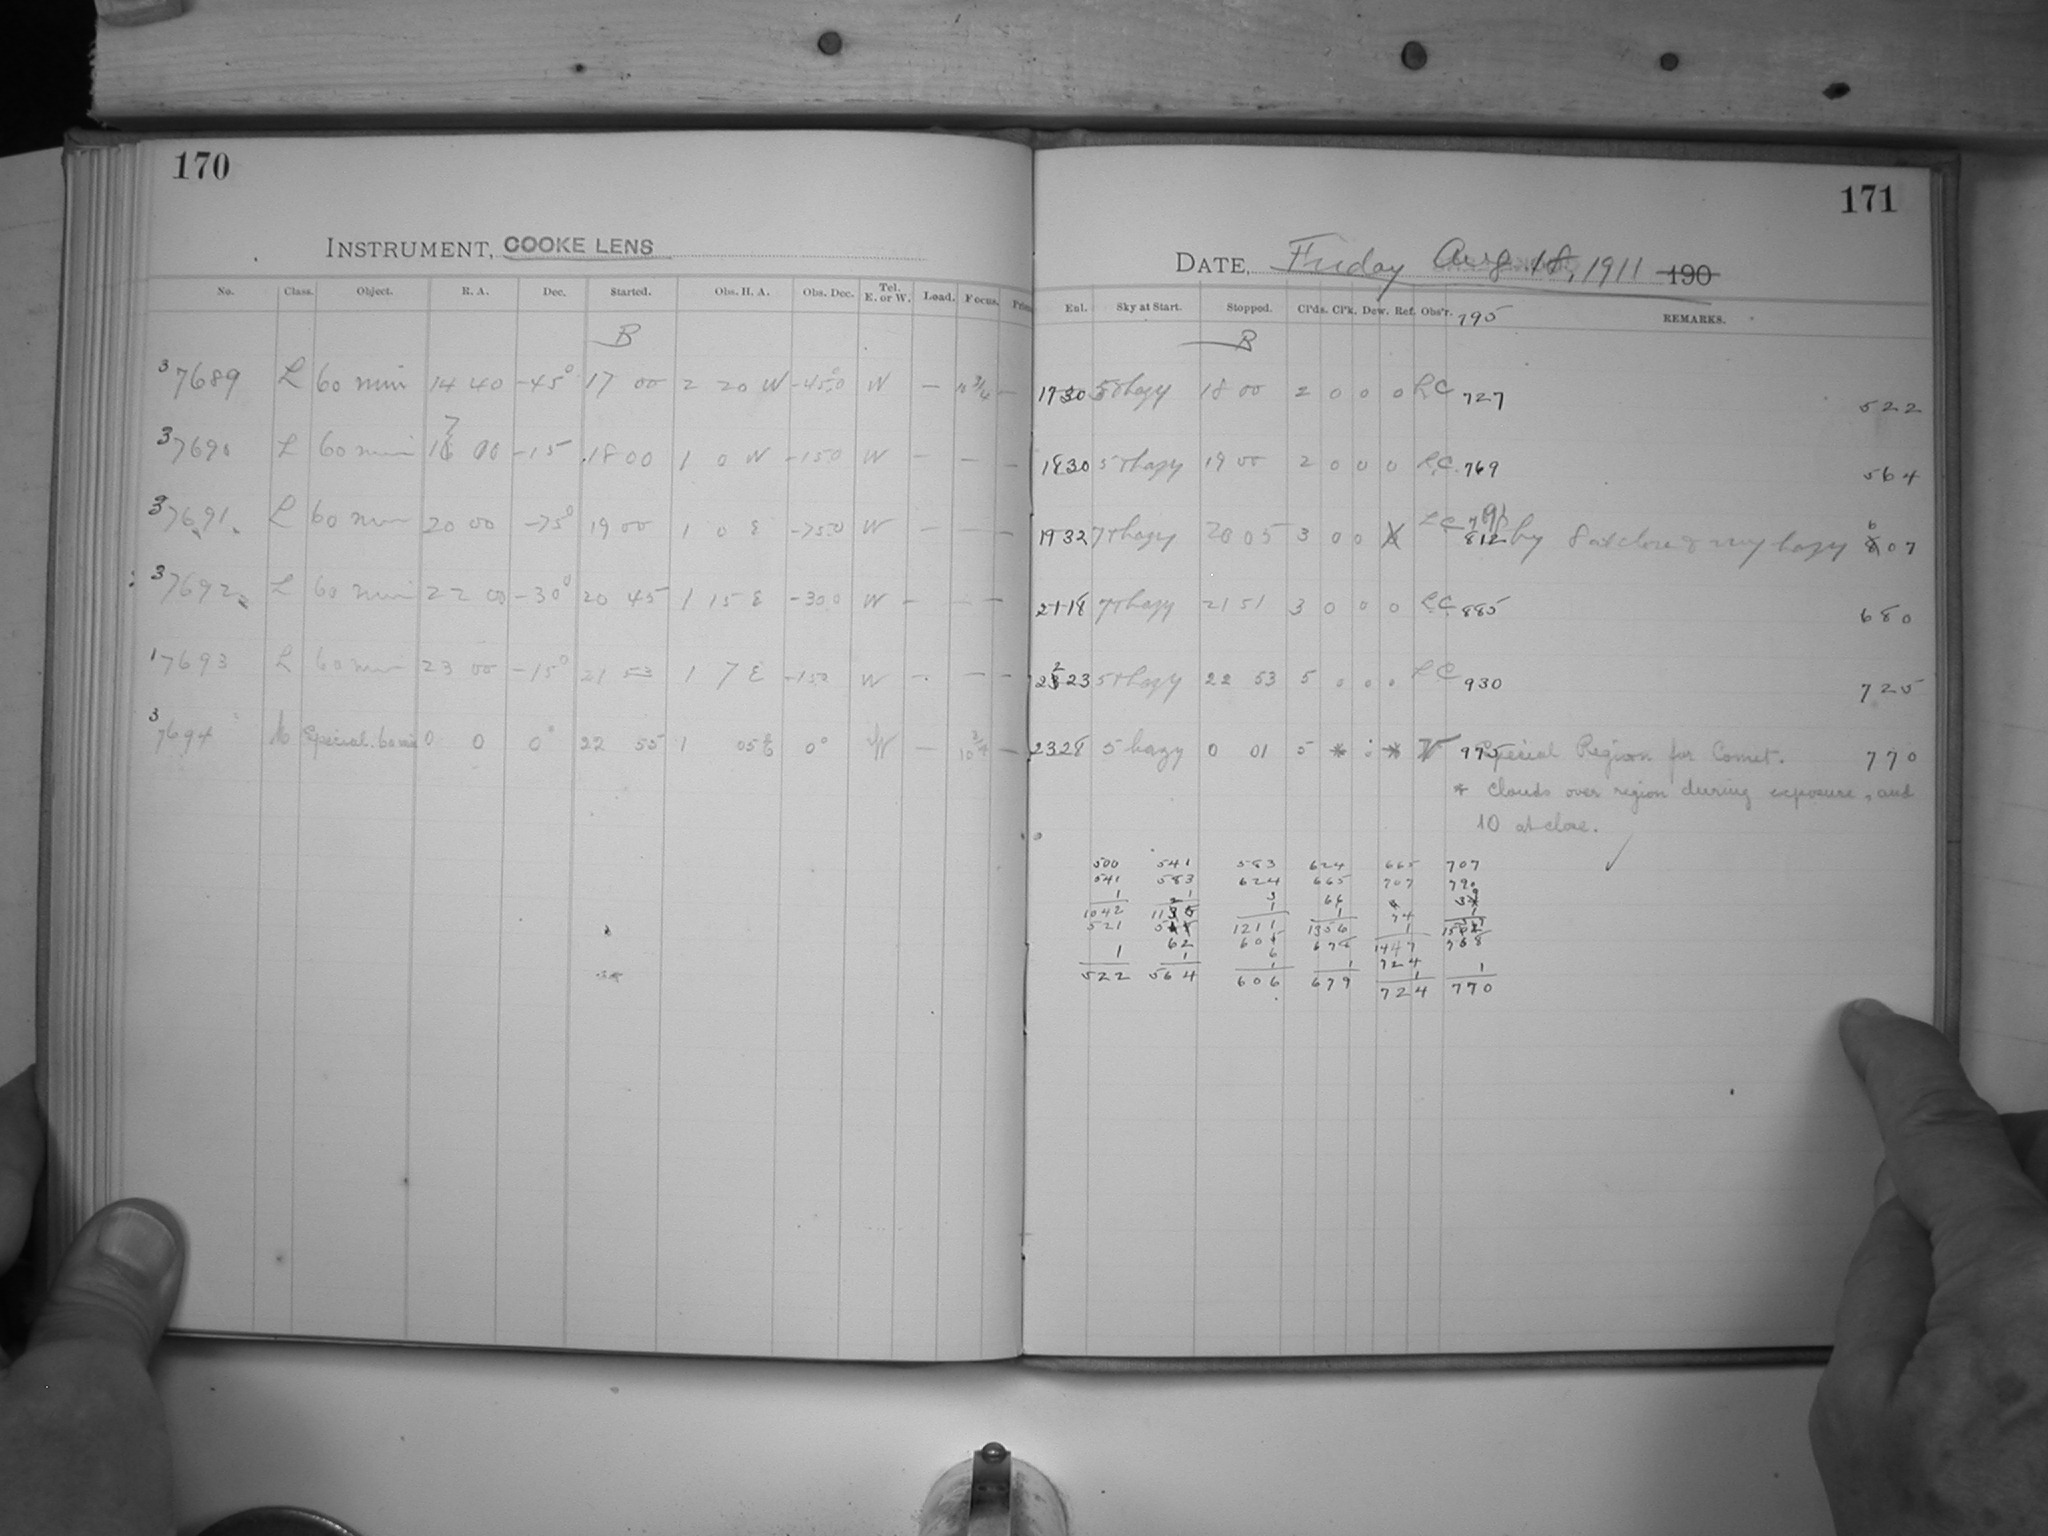 170
INSTRUMENT, COOKE LENS
No. Class. Object. R. A. Dec. Started. Obs. H. A. Obs. Dec. Tel. E. or W. Load. Focus.
B
37689 L 60 min 14 40 -45° 17 00 2 20 W -45.0 W — 10 3/4 —
37690 L 60 min 17 00 -15 18 00 1 0 W -15.0 W — — —
37691 L 60 min 20 00 -75° 19 00 1 0 E -75.0 W — — —
37692 L 60 min 22 00 -30° 20 45 1 15 E -30.0 W — — —
17693 L 60 min 23 00 -15° 21 53 1 7 E -15.0 W — — —
37694 Special 60 min 0 0 0° 22 55 1 05 0° W — 10 3/4 —
171
DATE, Friday Aug. 18, 1911 190
Enl. Sky at Start. Stopped. Cl'ds. Cl'k. Dew. Ref. Obs'r. 795 REMARKS.
B
1730 5 hazy 18 00 2 0 0 0 LC 727 522
1830 5 hazy 19 00 2 0 0 0 LC 769 564
1932 7 hazy 20 05 3 0 0 LC 812 hy 8 at close & very hazy 607
2118 7 hazy 21 51 3 0 0 0 LC 885 680
2223 5 hazy 22 53 5 0 0 0 LC 930 725
2328 5 hazy 0 01 5 * : * 975 Special Region for Comet. 770
* Clouds over region during exposure, and
10 at close. ✓
500 541 583 624 665 707
541 583 624 665 707
1042 1211 1356 1447
521
62
1 1 1 1 1
522 564 606 679 724 770